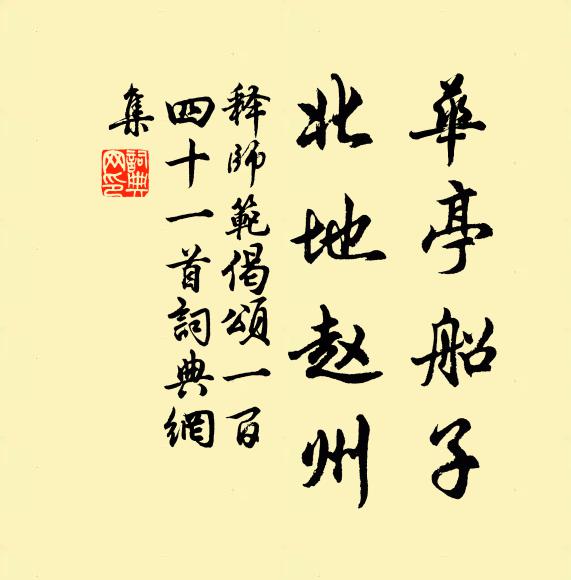 華亭船子
北地赵州
释師範偈頌一百
四十一首詞典網
集
詞典网印